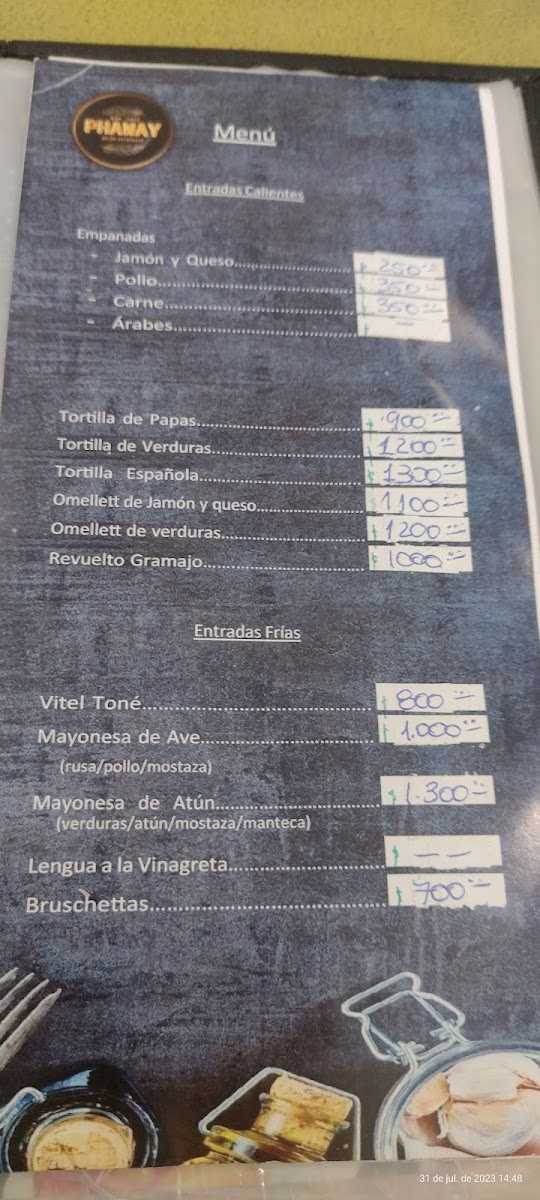 PHANAY
Menú
Entradas Calientes
Empanadas
- Jamón y Queso.......................... $ 250
- Pollo.......................... $ 350
- Carne.......................... $ 350
- Árabes.......................... $ —
Tortilla de Papas.......................... $ 900
Tortilla de Verduras.......................... $ 1200
Tortilla Española.......................... $ 1300
Omellett de Jamón y queso.......................... $ 1100
Omellett de verduras.......................... $ 1200
Revuelto Gramajo.......................... $ 1000
Entradas Frías
Vitel Toné.......................... $ 800
Mayonesa de Ave.......................... $ 1.000
(rusa/pollo/mostaza)
Mayonesa de Atún.......................... $ 1.300
(verduras/atún/mostaza/manteca)
Lengua a la Vinagreta.......................... $ — —
Bruschettas.......................... $ 700
31 de jul. de 2023 14:48